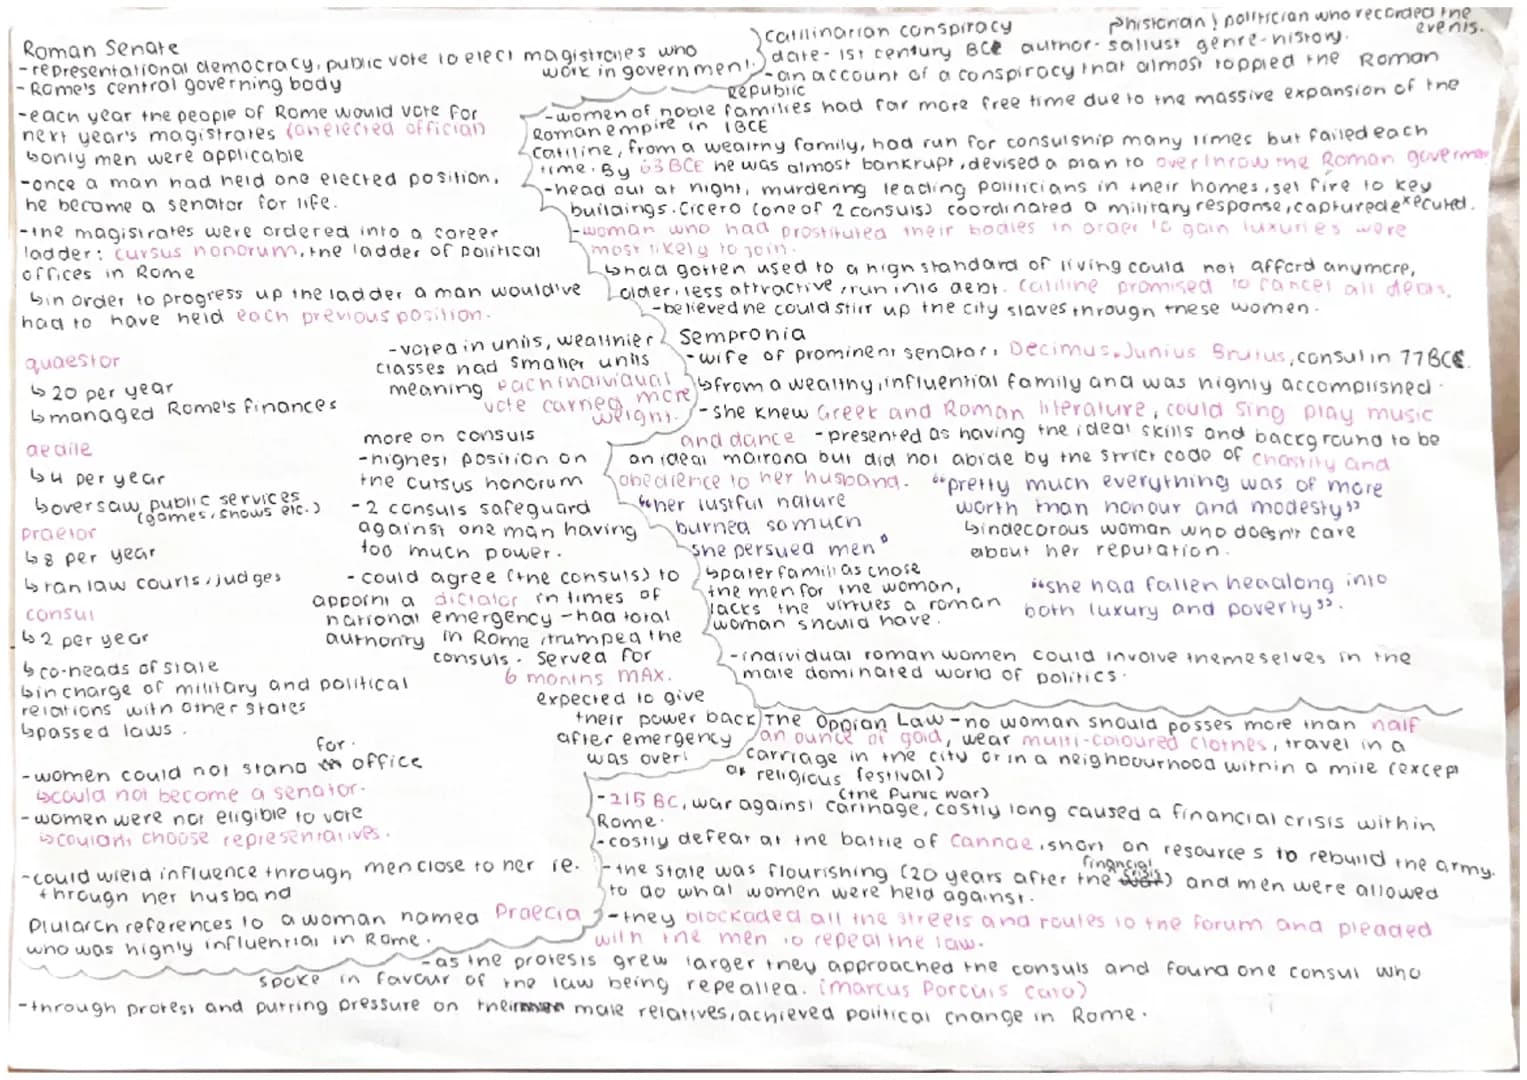 Roman Senate
-representational democracy, public vote to elect magistrates who
work in government.
- Rome's central governing body
-each year the people of Rome would vote for
next year's magistrates (an elected official)
↳only men were applicable
-once a man had held one elected position,
he become a senator for life.
-the magistrates were ordered into a career
ladder: cursus honorum, the ladder of political
offices in Rome
↳in order to progress up the ladder a man would've
had to have held each previous position.
quaestor
↳ 20 per year
↳managed Rome's finances
aedile
↳4 per year
↳oversaw public services
(games, shows etc.)
praetor
↳8 per year
↳ran law courts, judges
consul
↳2 per year
↳co-heads of state
↳in charge of military and political
relations with other states
↳passed laws.
-voted in units, wealthier
classes had smaller units
meaning each individual
vote carried more
weight.
more on consuls
-highest position on
the cursus honorum
-2 consuls safeguard
against one man having
too much power.
-could agree (the consuls) to
appoint a dictator in times of
national emergency -had total
authority in Rome, trumped the
consuls. Served for
6 months MAX.
expected to give
their power back
after emergency
was over!
for.
-women could not stand office
↳could not become a senator.
-women were not eligible to vote
↳couldn't choose representatives.
-could wield influence through men close to her ie.
through her husband
Plutarch references to a woman named Praecia
who was highly influential in Rome.
Catilinarian conspiracy
↱historian & politician who recorded the
events.
date- 1st century BCE author- sallust genre-history.
-an account of a conspiracy that almost toppled the Roman
Republic
-women of noble families had far more free time due to the massive expansion of the
Roman empire in 1BCE
Catiline, from a wealthy family, had run for consulship many times but failed each
time. By 63 BCE he was almost bankrupt, devised a plan to overthrow the Roman governmen
-head out at night, murdering leading politicians in their homes, set fire to key
buildings. Cicero (one of 2 consuls) coordinated a military response, captured executed.
-woman who had prostituted their bodies in order to gain luxuries were
most likely to join.
↳had gotten used to a high standard of living could not afford anymore,
older, less attractive, run into debt. Catiline promised to cancel all debts.
-believed he could stirr up the city slaves through these women.
Sempronia
-wife of prominent senator, Decimus Junius Brutus, consul in 77BCE.
↳from a wealthy, influential family and was highly accomplished.
-she knew Greek and Roman literature, could sing play music
and dance -presented as having the ideal skills and background to be
an ideal matrona but did not abide by the strict code of chastity and
obedience to her husband. "pretty much everything was of more
worth than honour and modesty"
↳indecorous woman who doesn't care
about her reputation.
"her lustful nature
burned so much
she persued men"
↳paterfamilias chose
the men for the woman,
lacks the virtues a roman
woman should have.
"she had fallen headlong into
both luxury and poverty".
-individual roman women could involve themeselves in the
male dominated world of politics.
The Oppian Law -no woman should posses more than half
an ounce of gold, wear multi-coloured clothes, travel in a
carriage in the city or in a neighbourhood within a mile (except
at religious festival)
(the Punic war)
-215 BC, war against carthage, costly long caused a financial crisis within
Rome.
-costly defeat at the battle of Cannae, short on resources to rebuild the army.
financial
crisis
-the state was flourishing (20 years after the war) and men were allowed
to do what women were held against.
-they blockaded all the streets and routes to the forum and pleaded
with the men to repeal the law.
-as the protests grew larger they approached the consuls and found one consul who
spoke in favour of the law being repealled. (marcus Porcuis cato)
-through protest and putting pressure on their male relatives, achieved political change in Rome.